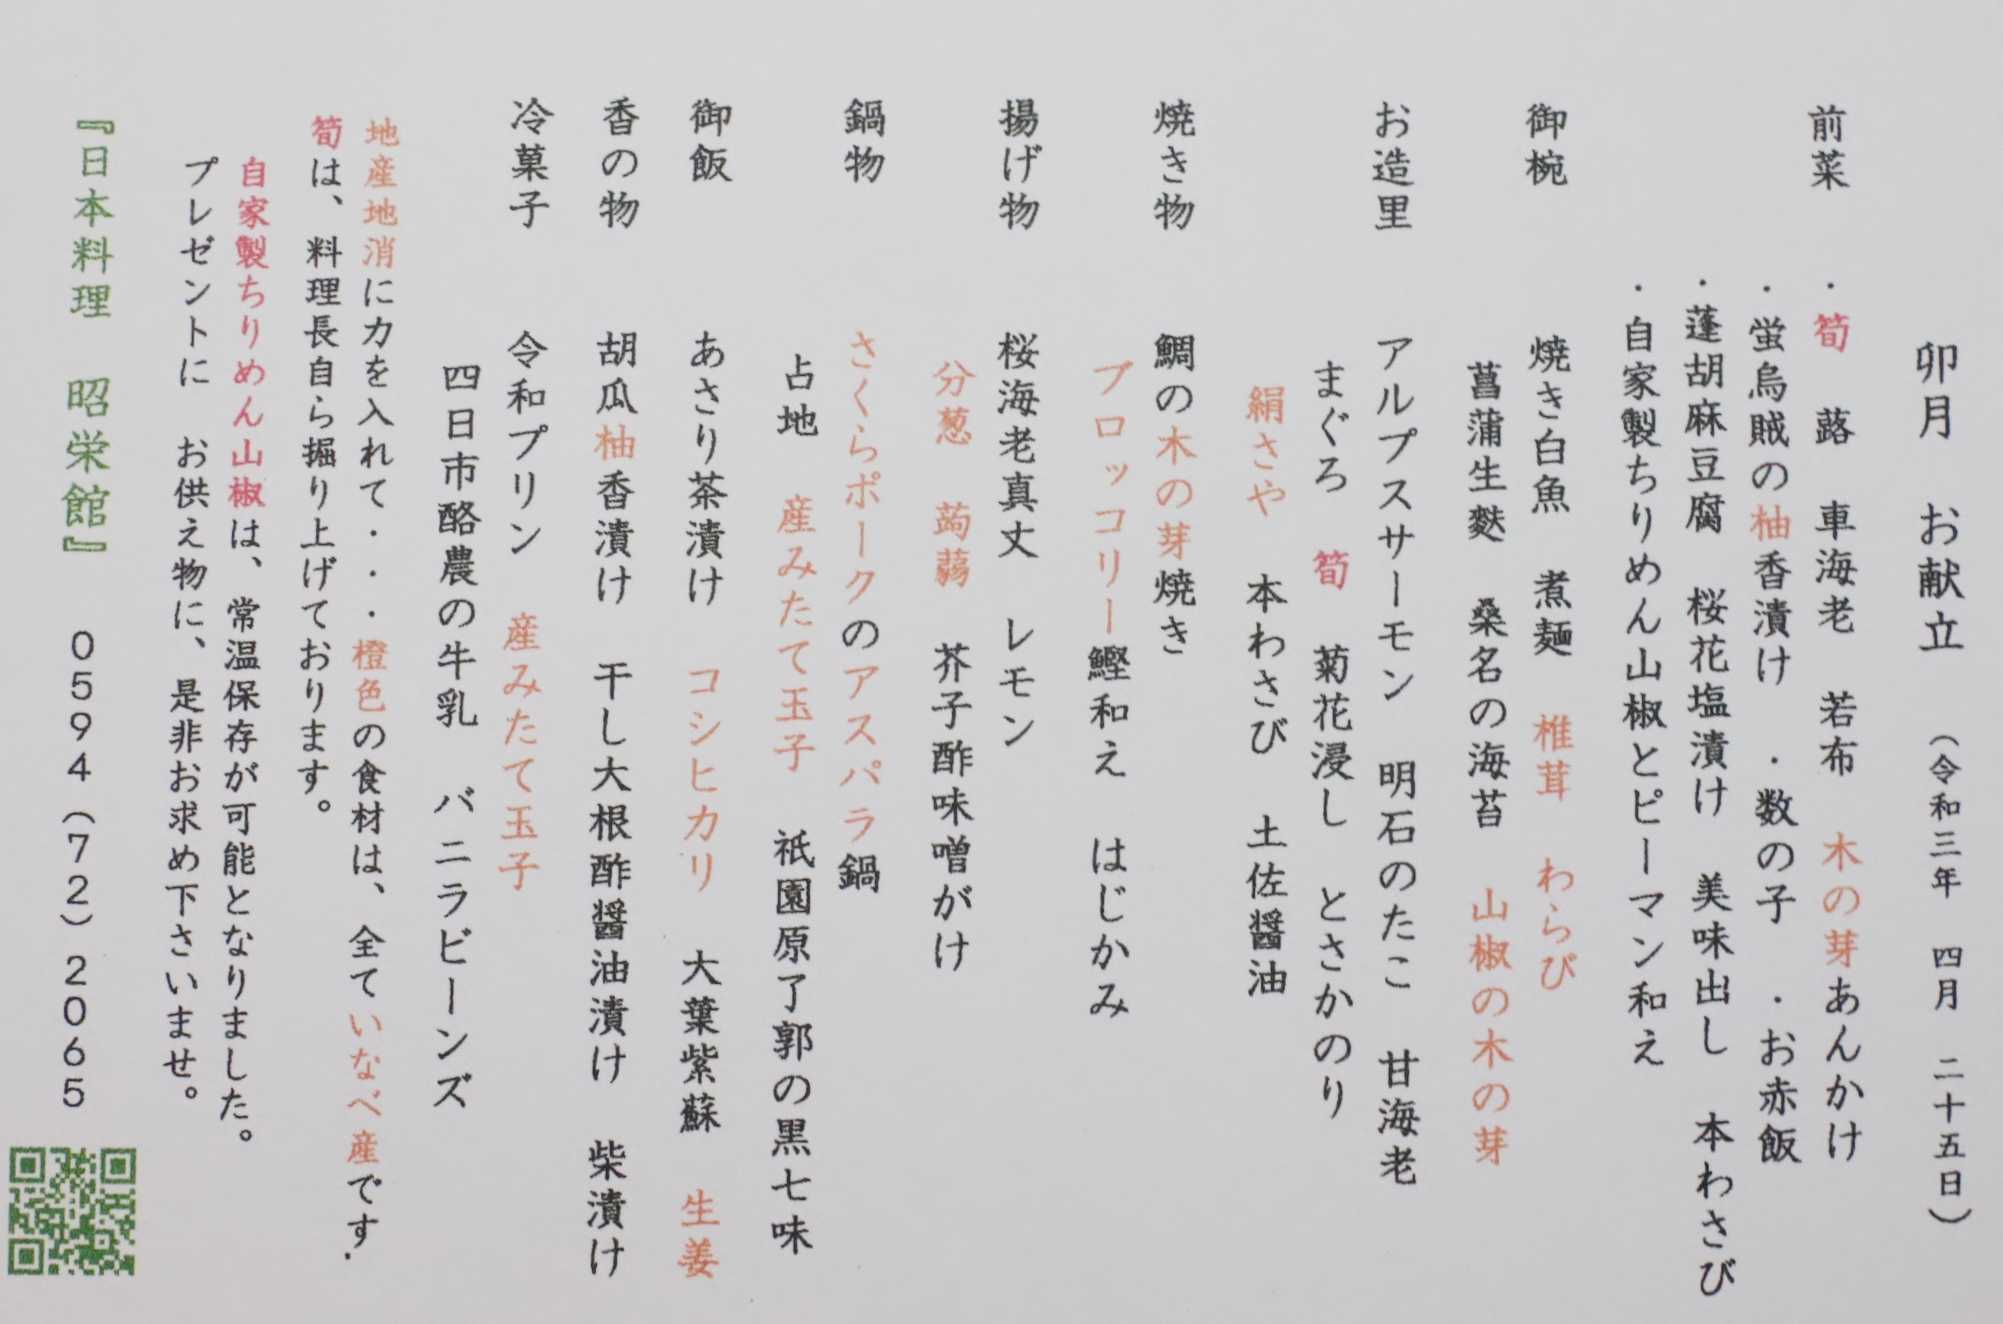 卯月　お献立　（令和三年　四月　二十五日）
前菜　・筍　蕗　車海老　若布　木の芽あんかけ
・蛍烏賊の柚香漬け　・数の子　・お赤飯
・蓬胡麻豆腐　桜花塩漬け　美味出し　本わさび
・自家製ちりめん山椒とピーマン和え
御椀　焼き白魚　煮麺　椎茸　わらび
菖蒲生麩　桑名の海苔　山椒の木の芽
お造里　アルプスサーモン　明石のたこ　甘海老
まぐろ　筍　菊花浸し　とさかのり
絹さや　本わさび　土佐醤油
焼き物　鯛の木の芽焼き
ブロッコリー鰹和え　はじかみ
揚げ物　桜海老真丈　レモン
分葱　蒟蒻　芥子酢味噌がけ
鍋物　さくらポークのアスパラ鍋
占地　産みたて玉子　祇園原了郭の黒七味
御飯　あさり茶漬け　コシヒカリ　大葉紫蘇　生姜
香の物　胡瓜柚香漬け　干し大根酢醤油漬け　柴漬け
冷菓子　令和プリン　産みたて玉子
四日市酪農の牛乳　バニラビーンズ
地産地消に力を入れて・・・橙色の食材は、全ていなべ産です.
筍は、料理長自ら掘り上げております。
自家製ちりめん山椒は、常温保存が可能となりました。
プレゼントに　お供え物に、是非お求め下さいませ。
『日本料理　昭栄館』　0594（72）2065